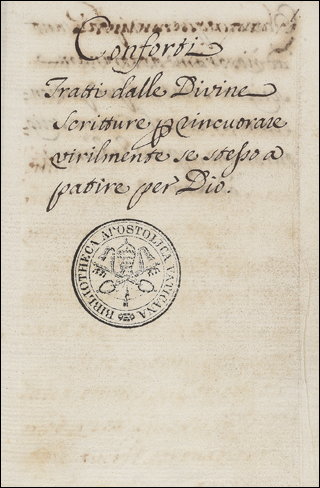 Conforti
Tratti dalle Divine
Scritture ꝑ rincuorare
virilmente se stesso a
patire per Dio.
BIBLIOTHECA APOSTOLICA VATICANA